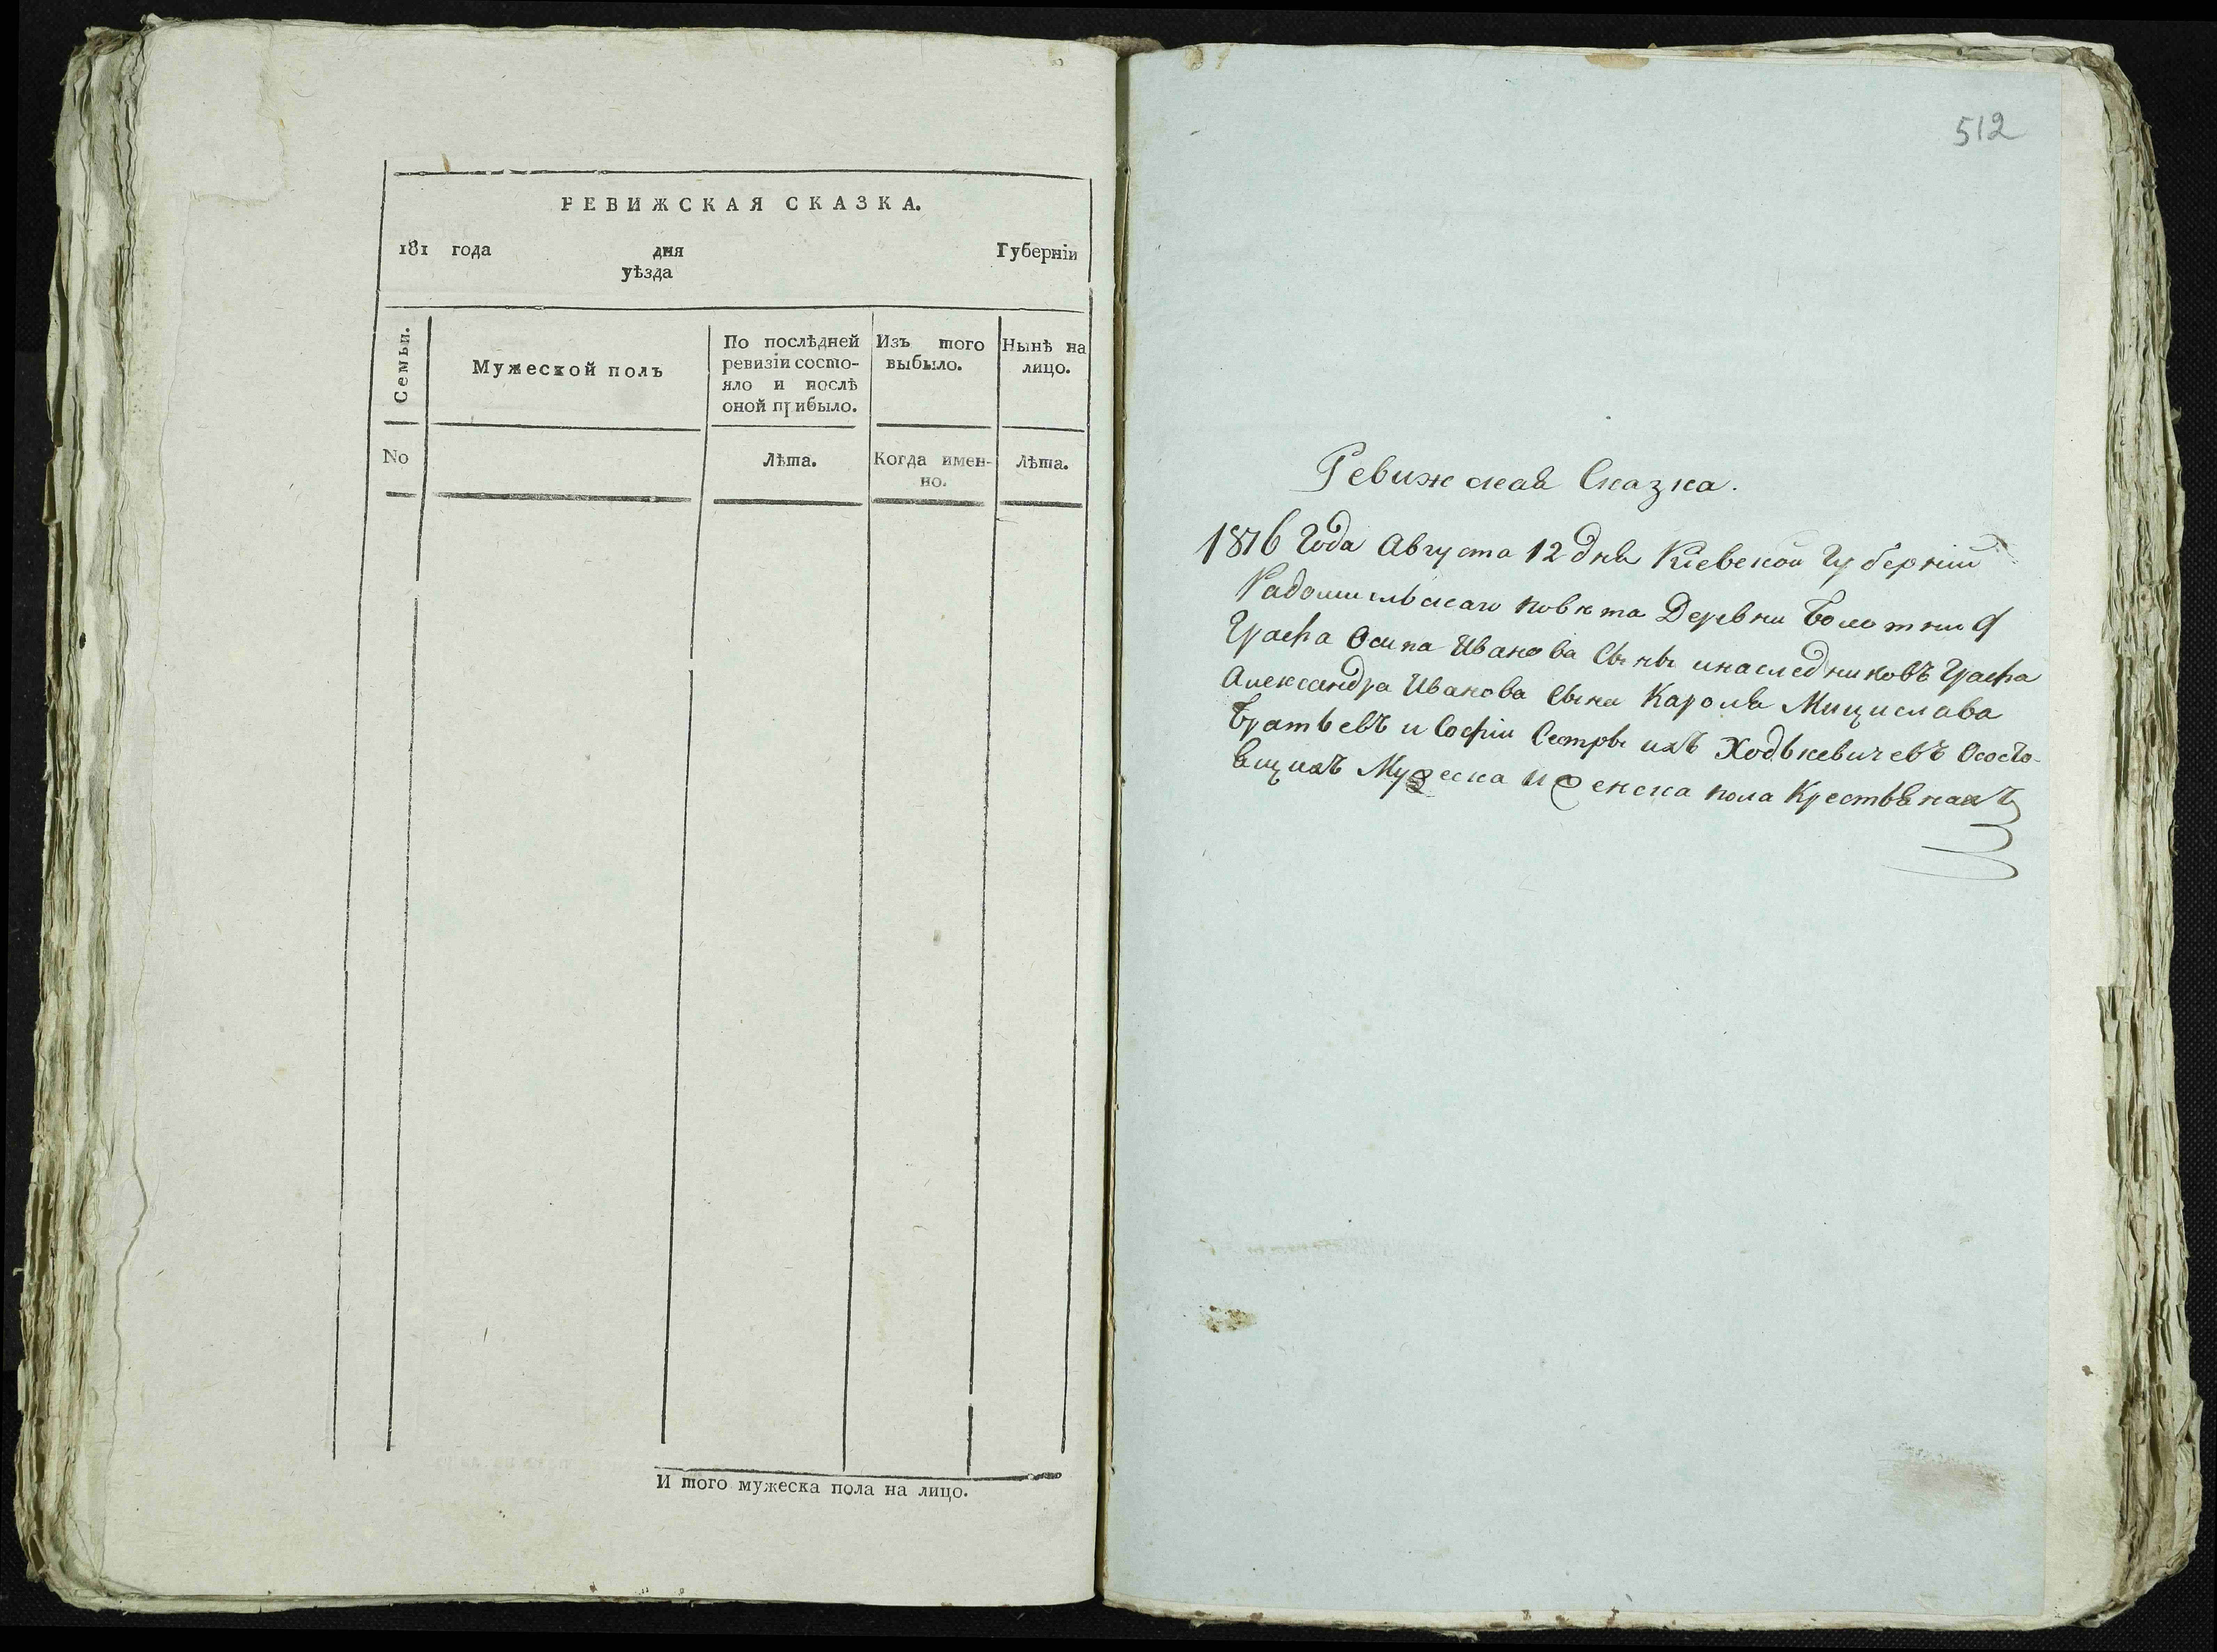 РЕВИЖСКАЯ СКАЗКА.
181 года дня Губерніи
уѣзда
Семьи.
Мужеской полъ
По послѣдней
ревизіи состо-
яло и послѣ
оной прибыло.
Изъ того
выбыло.
Нынѣ на
лицо.
No
Лѣта.
Когда имен-
но.
Лѣта.
И того мужеска пола на лицо.
512
Ревижская Сказка.
1816 Года Августа 12 дня Кіевской Губерніи
Радомисльскаго повѣта Деревни Болотни
Графа Осипа Иванова Сына инаследниковъ Графа
Александра Иванова Сына Кароля Мицислава
Братьевъ и Софіи Сестры ихъ Ходькевичевъ Ососто-
ящихъ Мужеска и женска пола Крестьянахъ